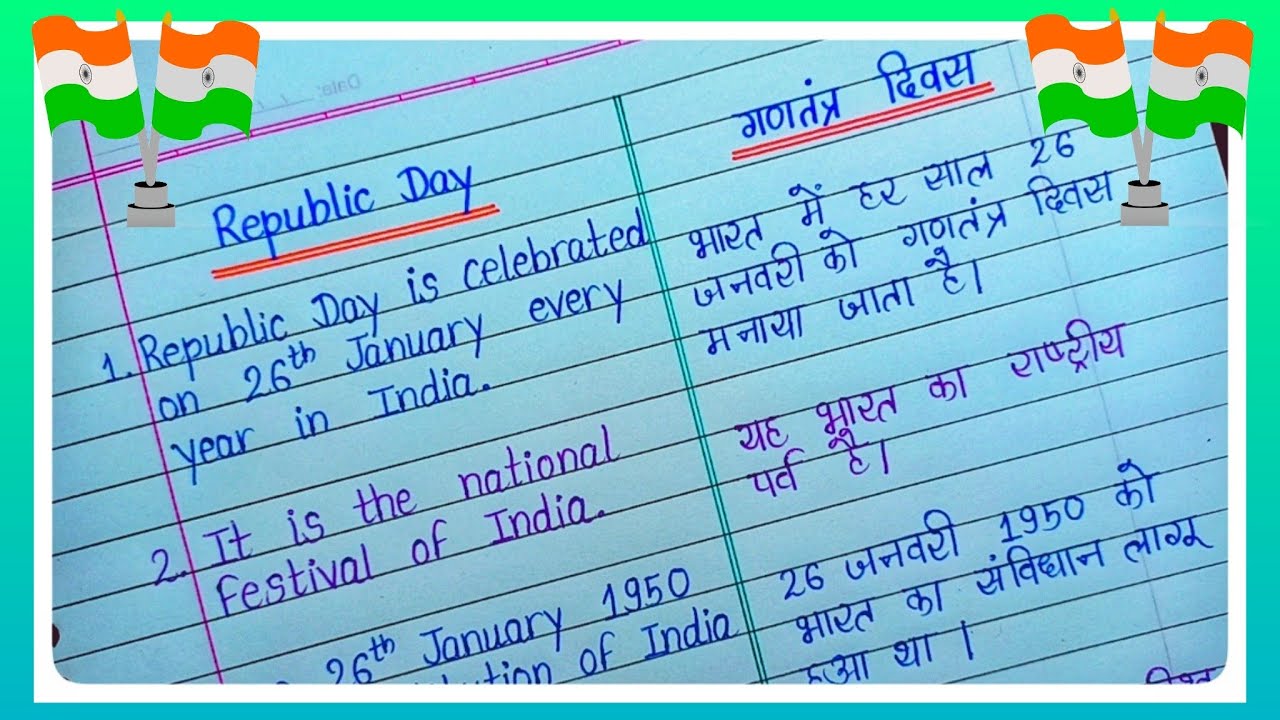 Republic Day
1. Republic Day is celebrated
on 26th January every
year in India.
2. It is the national
festival of India.
26th January 1950
of India
गणतंत्र दिवस
भारत में हर साल 26
जनवरी को गणतंत्र दिवस
मनाया जाता है।
यह भारत का राष्ट्रीय
पर्व है।
26 जनवरी 1950 को
भारत का संविधान लागू
हुआ था।